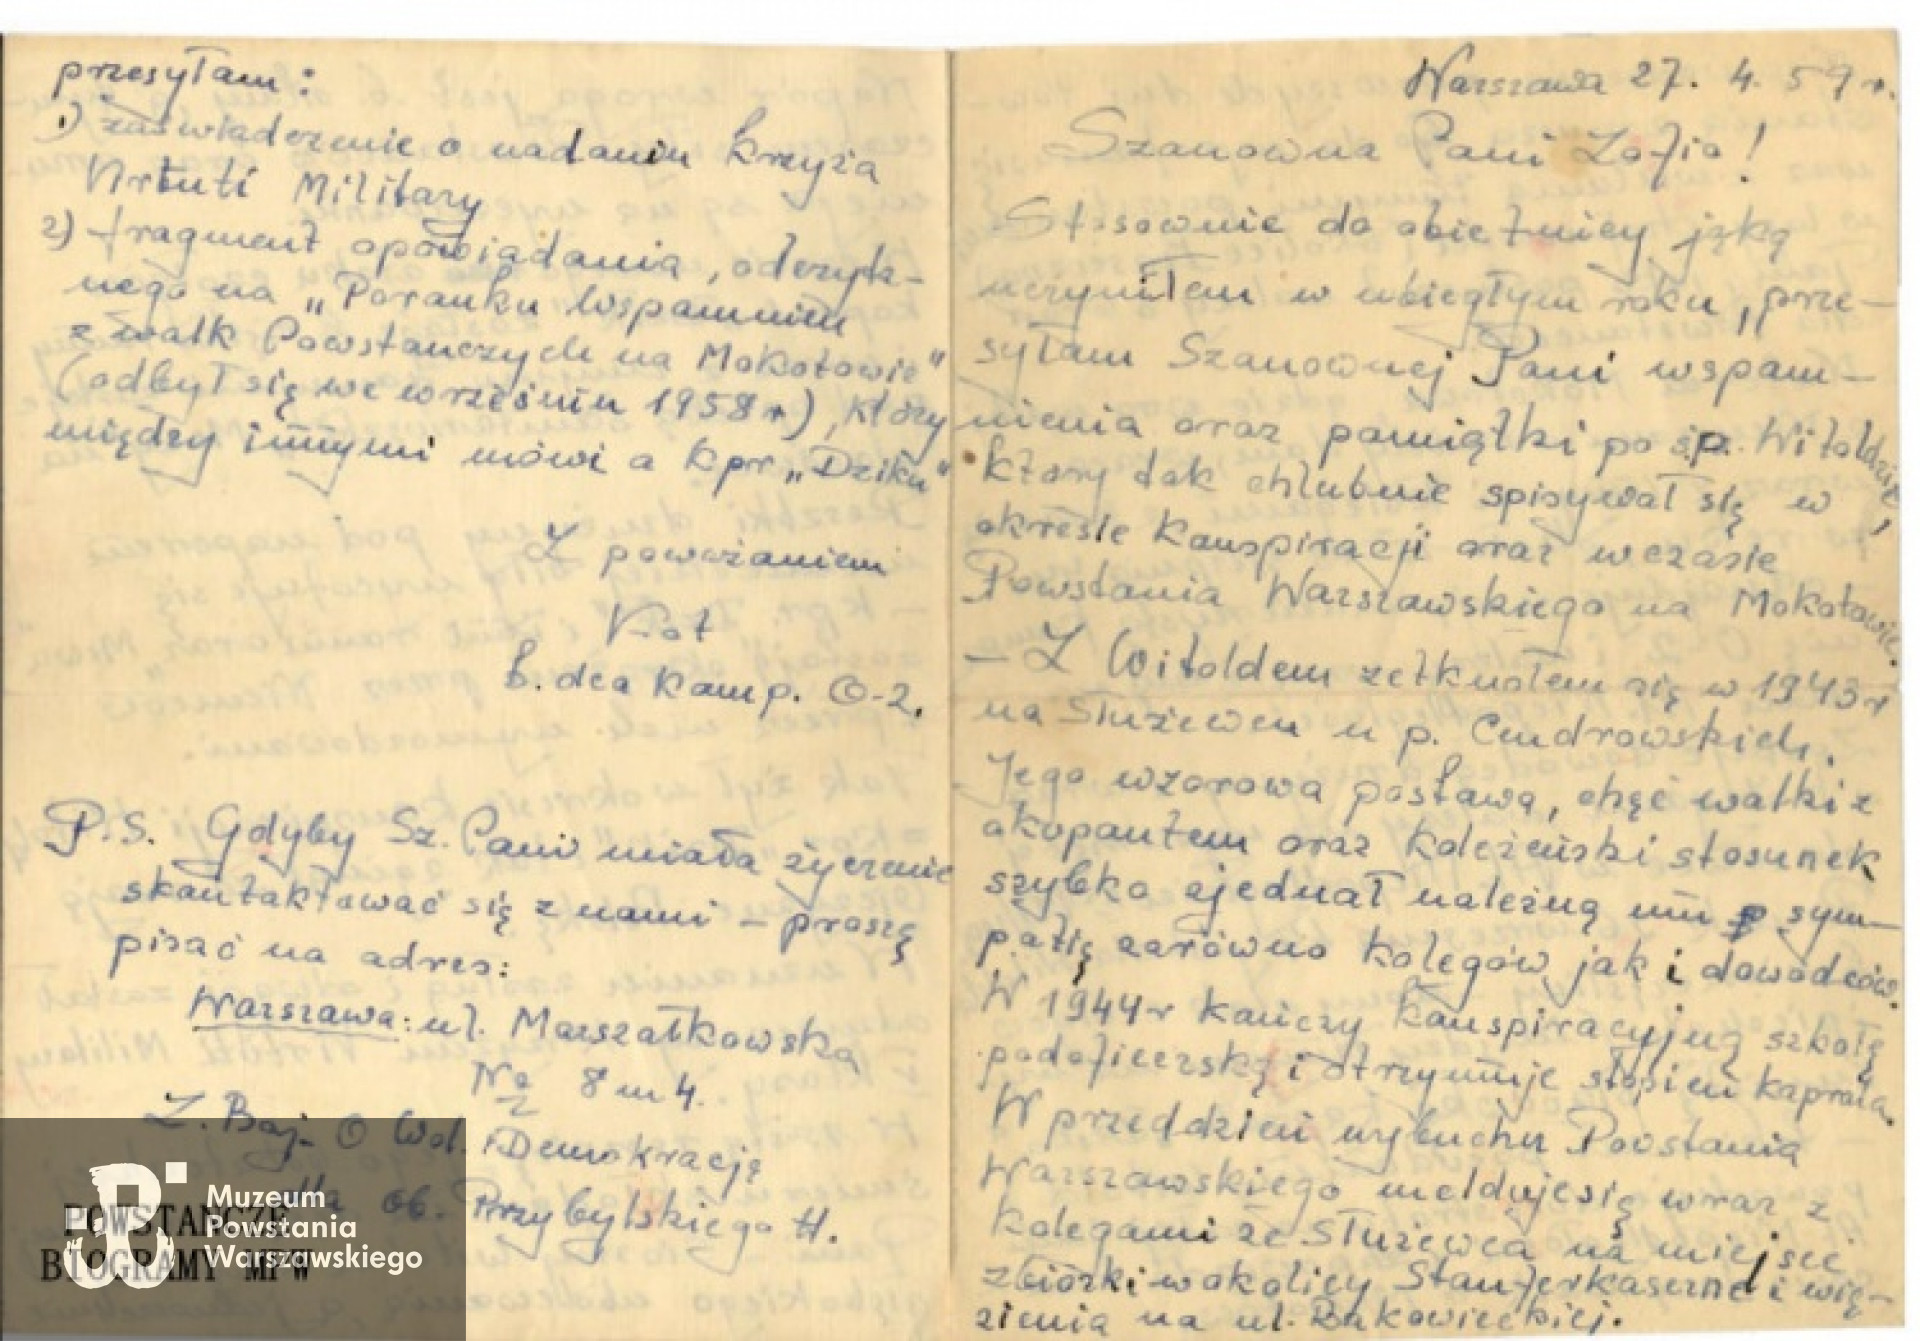 Warszawa 27. 4. 59 r.
Szanowna Pani Zofio!
Stosownie do obietnicy jaką
uczyniłem w ubiegłym roku, prze-
syłam Szanownej Pani wspom-
nienia oraz pamiątki po śp. Witoldzie,
który tak chlubnie spisywał się w
okresie Konspiracji oraz wczasie
Powstania Warszawskiego na Mokotowie.
- Z Witoldem zetknąłem się w 1943 r
na Służewcu u p. Cendrowskich.
Jego wzorowa postawa, chęć walki z
okupantem oraz koleżeński stosunek
szybko zjednał należną mu sym-
patię zarówno kolegów jak i dowódców.
W 1944 r kończy konspiracyjną szkołę
podoficerską i otrzymuje stopień kaprala.
W przeddzień wybuchu Powstania
Warszawskiego melduje się wraz z
kolegami ze Służewca na miejsce
zbiórki w okolicy Stauferkaserne i wię-
zienia na ul. Rakowieckiej.
przesyłam:
1) zaświadczenie o nadaniu krzyża
Virtuti Military
2) fragment opowiadania, odczyta-
nego na „Poranku Wspomnień
z walk Powstańczych na Mokotowie"
(odbył się we wrześniu 1958 r), który
między innymi mówi o kpr „Dziku"
Z poważaniem
Kot
b. dca komp. O-2.
P.S. Gdyby Sz. Pani miała życzenie
skontaktować się z nami – proszę
pisać na adres:
Warszawa: ul. Marszałkowska
No 8 m 4.
Z. Boj. O Wol. i Demokrację
dla ob. Przybylskiego H.
POWSTAŃCZE
BIOGRAMY MPW
Muzeum
Powstania
Warszawskiego